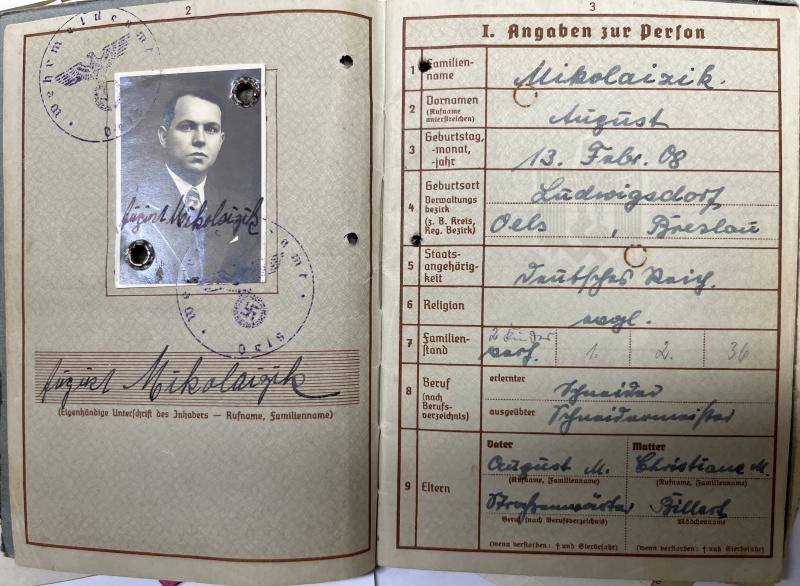 2
Wehrmeldeamt
Oels
August Mikolaizik
Wehrmeldeamt
Oels
August Mikolaizik
(Eigenhändige Unterschrift des Inhabers — Rufname, Familienname)
3
I. Angaben zur Person
1 Familien-
name
Mikolaizik.
2 Vornamen
(Rufname
unterstreichen)
August
3 Geburtstag,
-monat,
-jahr
13. Febr. 08
4 Geburtsort
Verwaltungs
bezirk
(z. B. Kreis,
Reg. Bezirk)
Ludwigsdorf
Oels , Breslau
5 Staats-
angehörig-
keit
Deutsches Reich.
6 Religion
evgl.
7 Familien-
stand
2 Kinder
verh. 1. 2. 36
8 Beruf
(nach
Berufs-
verzeichnis)
erlernter
Schneider
ausgeübter
Schneidermeister
9 Eltern
Vater
August M.
(Rufname, Familienname)
Straßenwärter
Beruf (nach Berufsverzeichnis)
(wenn verstorben: † und Sterbejahr)
Mutter
Christiane M.
(Rufname, Familienname)
Mädchenname
(wenn verstorben: † und Sterbejahr)